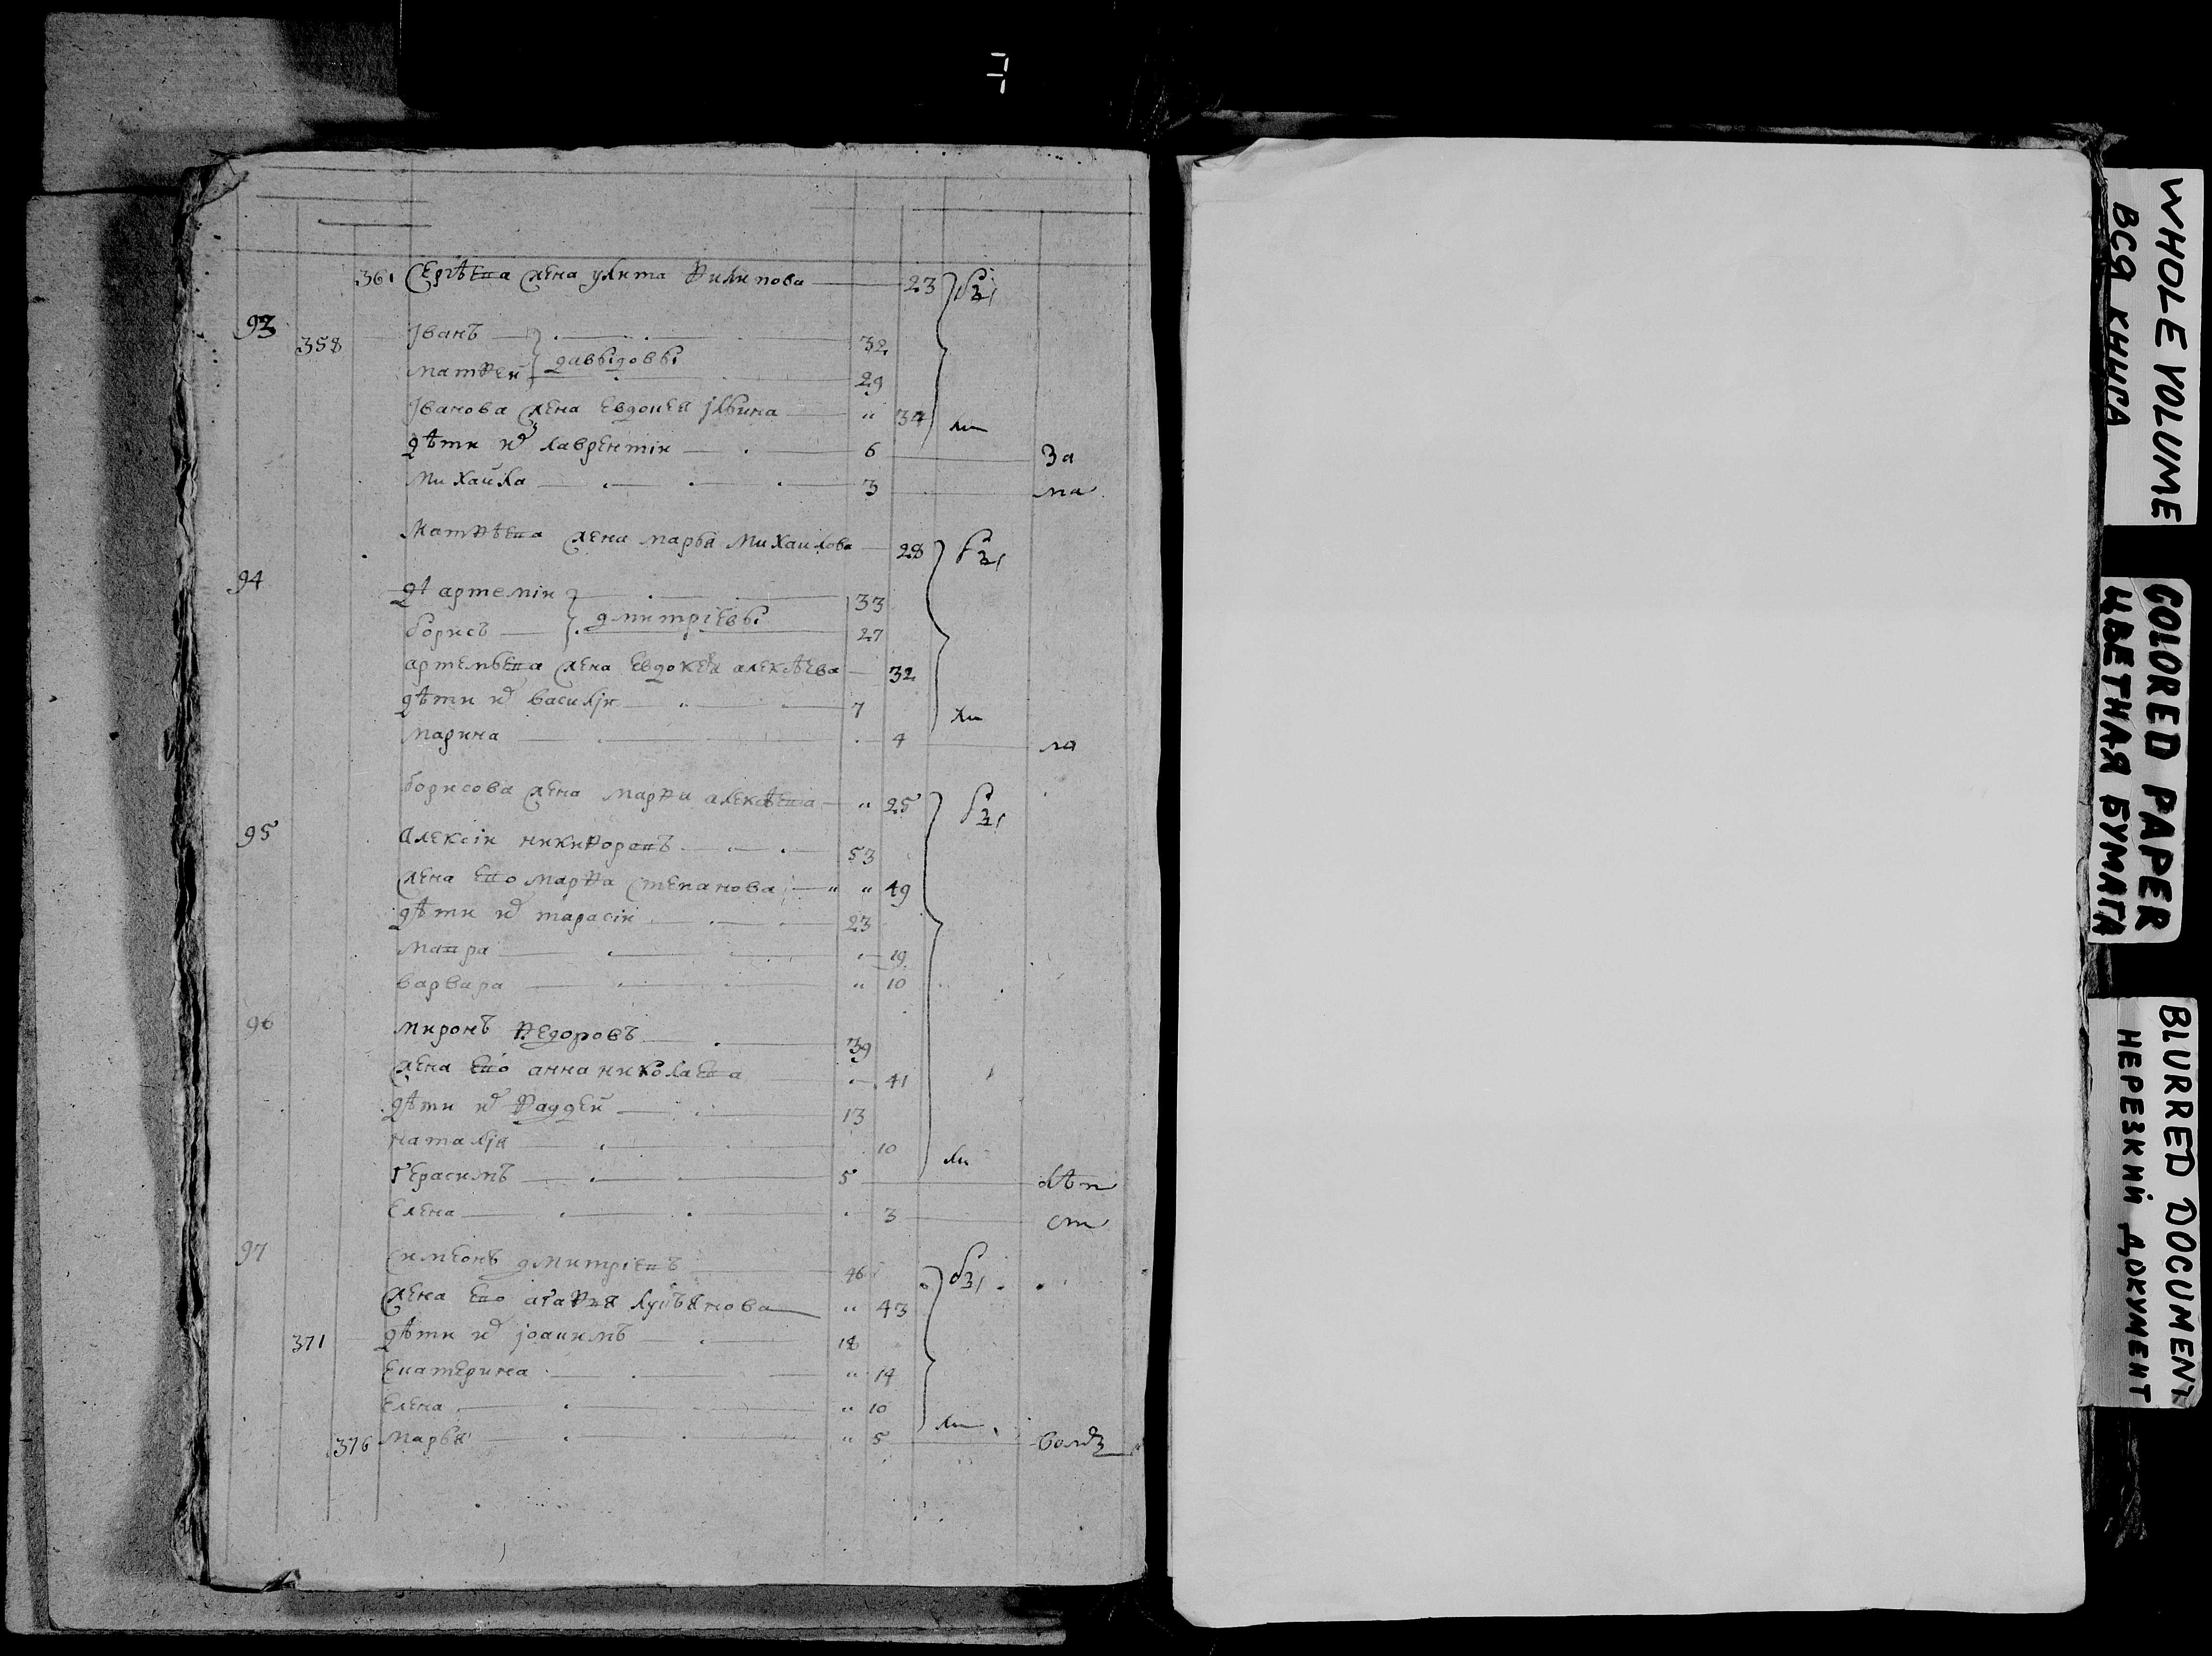 361 Сергѣева жена улита Филипова 23
93 358 Іванъ 32
давыдовы
матфей 29
Іванова жена Евдокея Ильина " 34
дѣти их лаврентіи 6 За
михайла 3 ма
Матфѣева жена марья Михаилова 28
94 артеміи 33
дмитріевы
борисъ 27
артемьева жена Евдокея алексѣева 32
дѣти их василји 7
марина 4 ма
борисова жена марфа алексѣева " 25
95 Алексіи никифоровъ 53
жена ево марфа Степанова " " 49
дѣти их тарасіи 23
мавра 19
варвара " 10
96 миронъ Федоровъ 39
жена ево анна николаева 41
дѣти их Фаддей 13
наталја 10
Герасимъ 5 лѣт
Елена 3 ст
97 Симеонъ дмитріевъ 46
жена ево агафья лукьянова " 43
371 дѣти их јоакимъ 18
Екатерина " 14
Елена " 10
376 марья " 5
WHOLE VOLUME
ВСЯ КНИГА
COLORED PAPER
ЦВЕТНАЯ БУМАГА
BLURRED DOCUMENT
НЕРЕЗКИЙ ДОКУМЕНТ